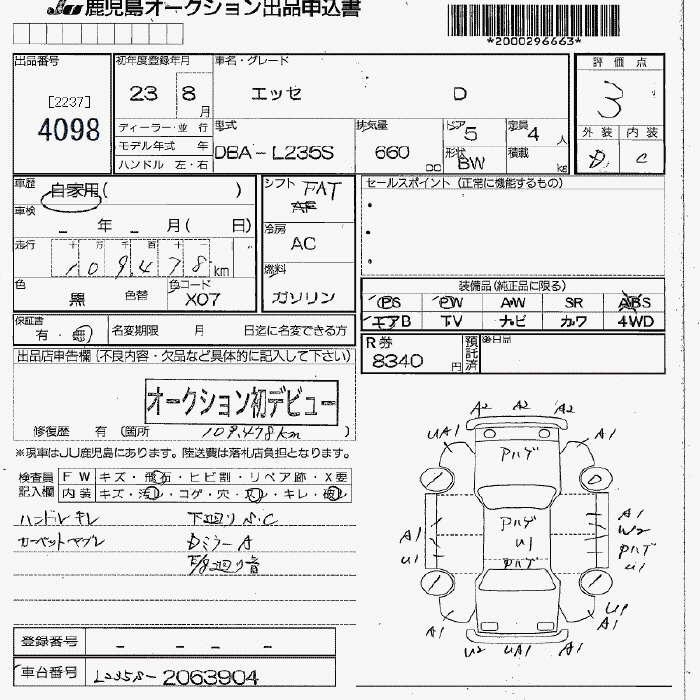 JU鹿児島オークション出品申込書
*2000296663*
出品番号
[2237]
4098
初年度登録年月
23 8月
車名・グレード
エッセ D
評価点
3
外装 内装
D C
ディーラー・並行
モデル年式 年
ハンドル 左・右
型式
DBA-L235S
排気量
660 cc
ドア 5
形状 BW
定員 4人
積載 kg
車歴
自家用( )
車検
- 年 - 月( 日)
走行
十 万 千 百 十 一
109478km
色
黒 色替
色コード
X07
シフト FAT
AF
冷房
AC
燃料
ガソリン
セールスポイント(正常に機能するもの)
・
・
・
装備品(純正品に限る)
PS PW AW SR ABS
エアB TV ナビ カワ 4WD
保証書
有・無
名変期限 月 日迄に名変できる方
R券
8340円
預託済
後日品
出品店申告欄(不良内容・欠品など具体的に記入して下さい)
オークション初デビュー
修復歴 有(箇所 109,478km )
※現車はJU鹿児島にあります。陸送費は落札店負担となります。
検査員記入欄
FW キズ・飛石・ヒビ割・リペア跡・X要
内装 キズ・汚レ・コゲ・穴・スレ・キレ・破レ
ハンドレキレ 下廻りS.C
カーペットヤブレ Dミラー A
F/8廻り音
A2 A2 A2
UA1 A1
Pハゲ
A1 A1
Pハゲ W2
U1 U1 Pハゲ
Pハゲ U1
U1
A1 A1
U2 UA1 A1
登録番号 - - - -
車台番号 L235S-2063904